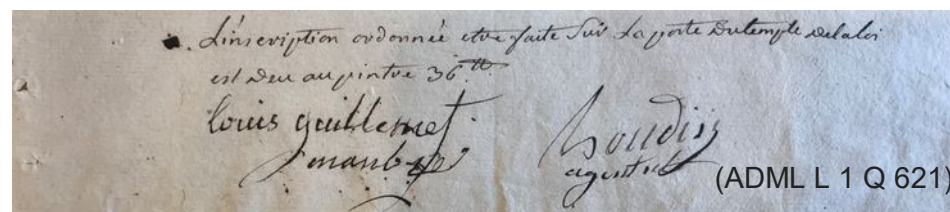 . L'inscription ordonnée etre faite Sur La porte Du temple Delaloi
est Deu au pintre 36.tt
Louis guillemet
houdin
agent
(ADML L 1 Q 621)